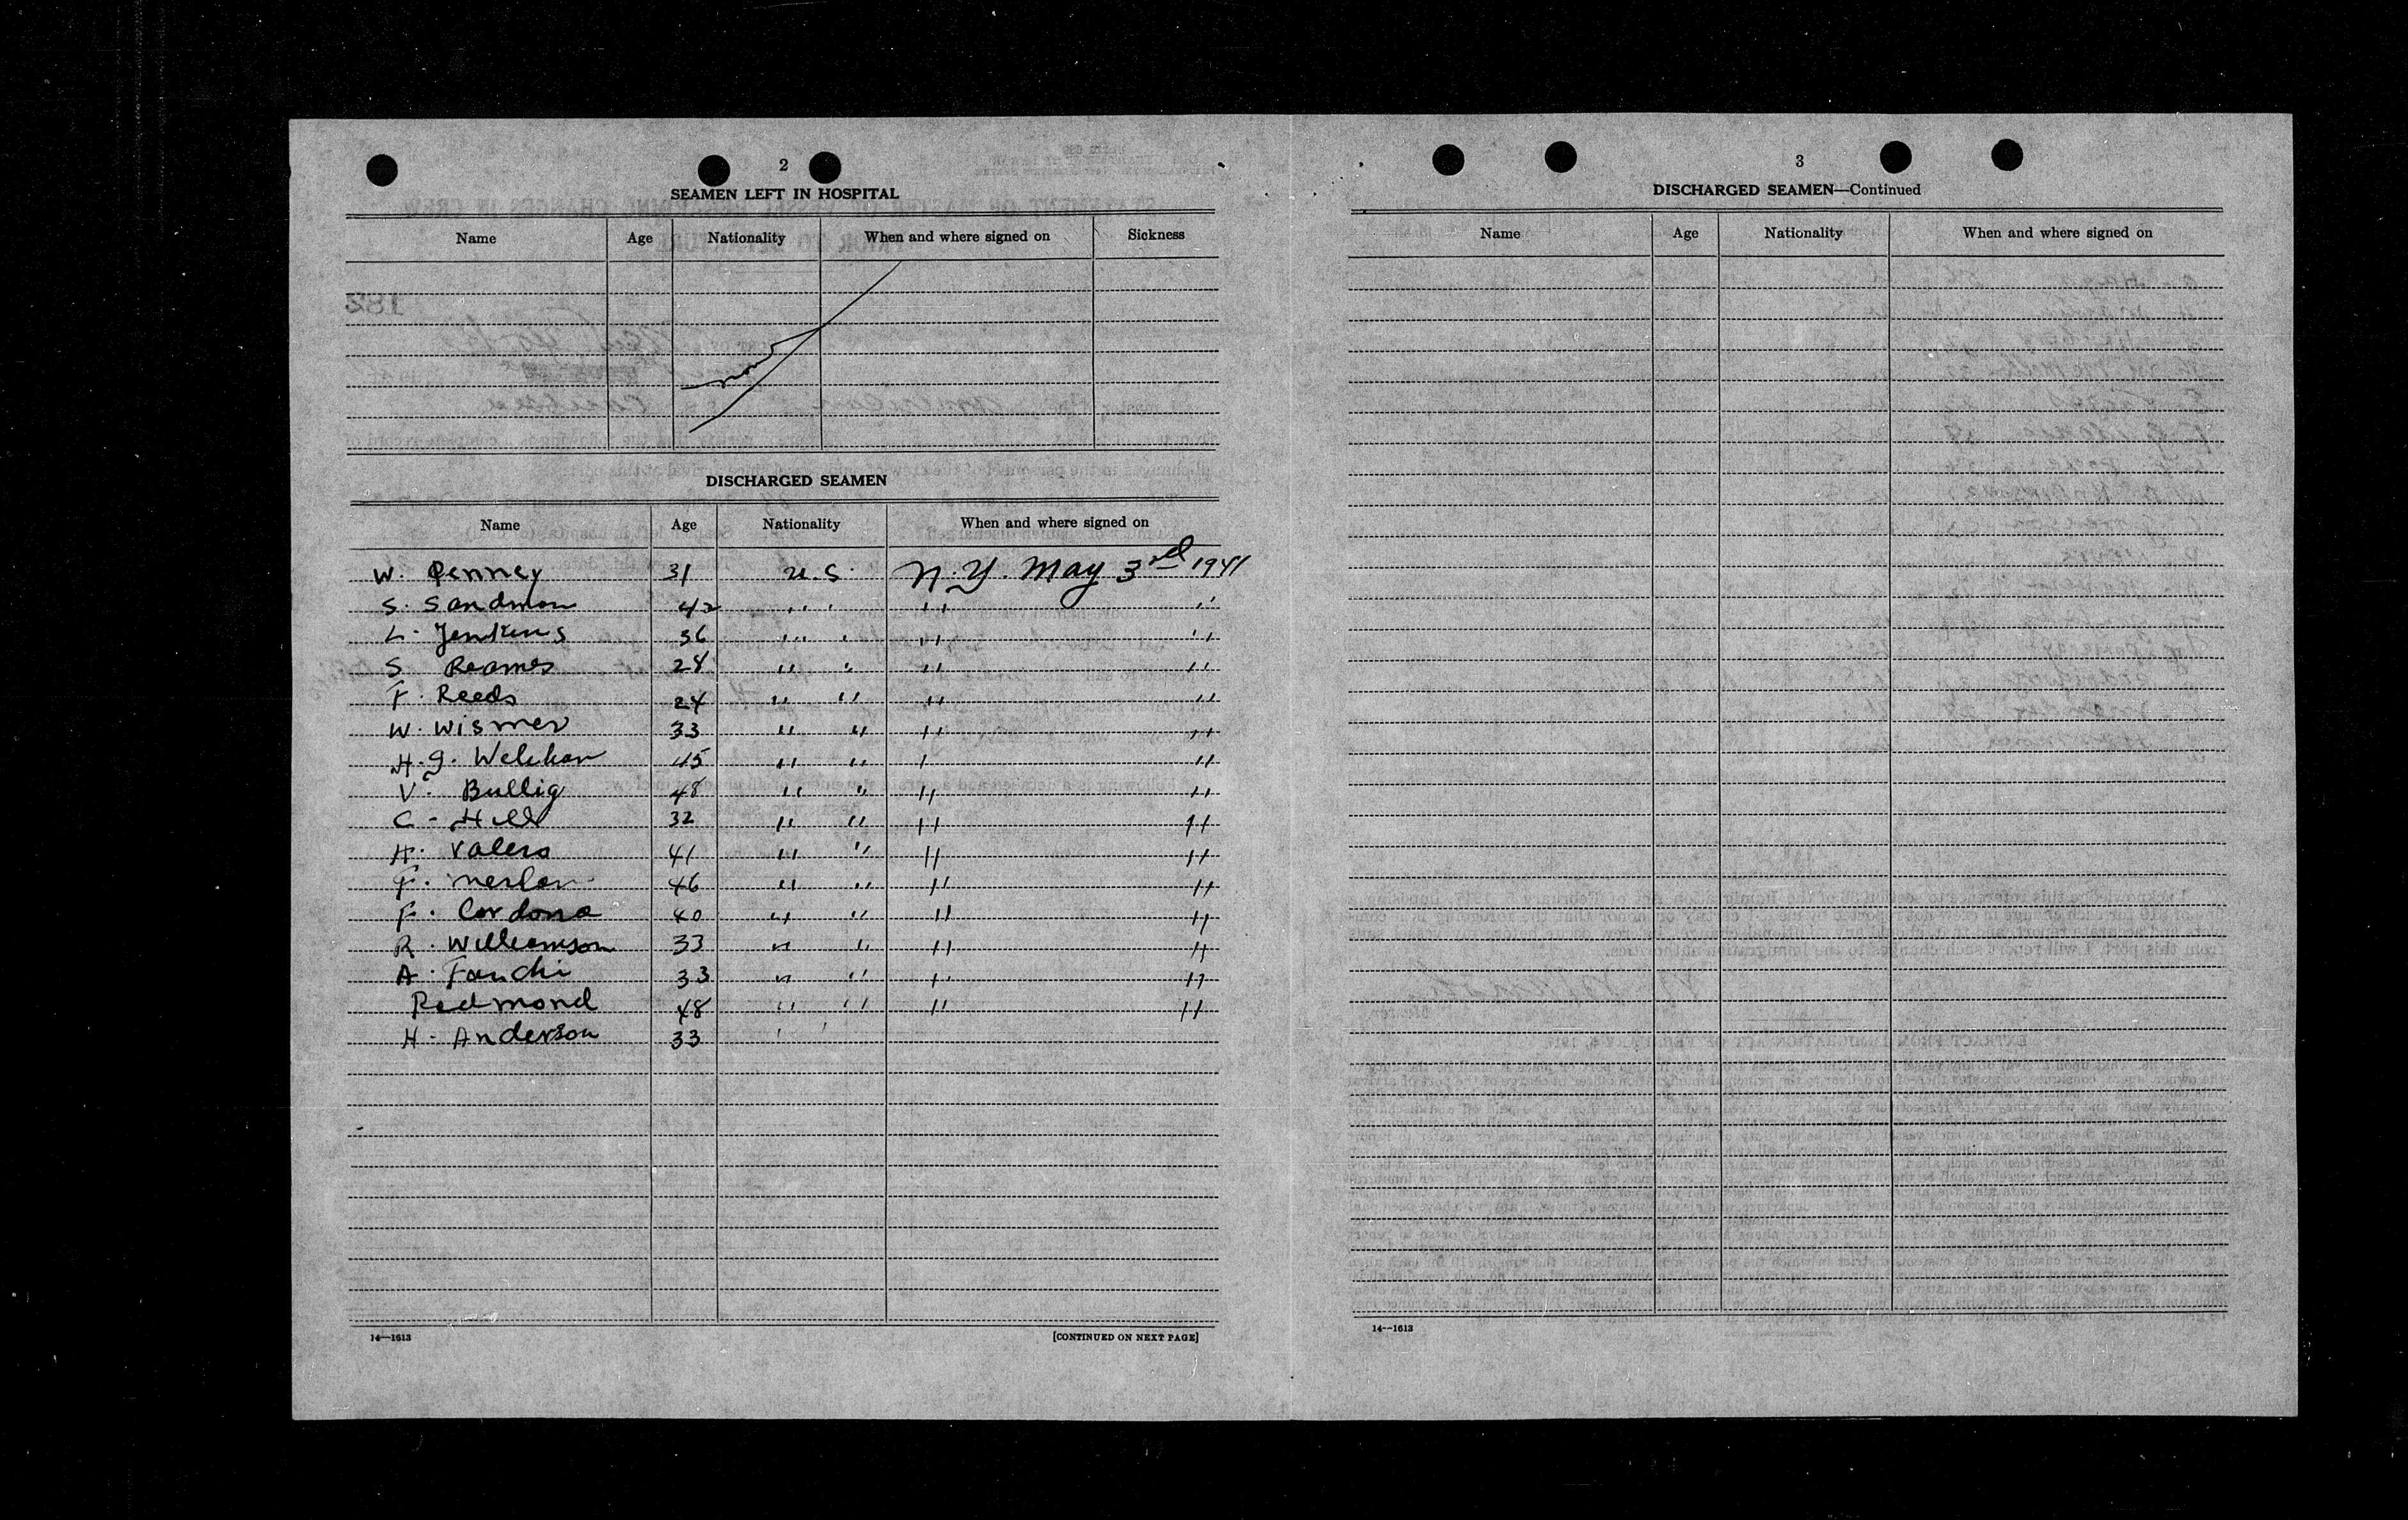 2
SEAMEN LEFT IN HOSPITAL
Name Age Nationality When and where signed on Sickness
none
DISCHARGED SEAMEN
Name Age Nationality When and where signed on
W. Penney 31 U.S. N.Y. May 3rd 1941
S. Sandmon 42 " " " "
L. Jenkins 36 " " " "
S Reames 28 " " " "
F. Reeds 24 " " " "
W. Wismer 33 " " " "
H.J. 45 " " " "
V. Bullig 48 " " " "
C - Hill 32 " " " "
H. Valero 41 " " " "
F. 46 " " " "
F. Cordona 40 " " " "
R. Williamson 33 " " " "
A. Fanchi 33 " " " "
Redmond 48 " " " "
H. Anderson 33 " "
14—1613 [CONTINUED ON NEXT PAGE]
3
DISCHARGED SEAMEN—Continued
Name Age Nationality When and where signed on
14—1613